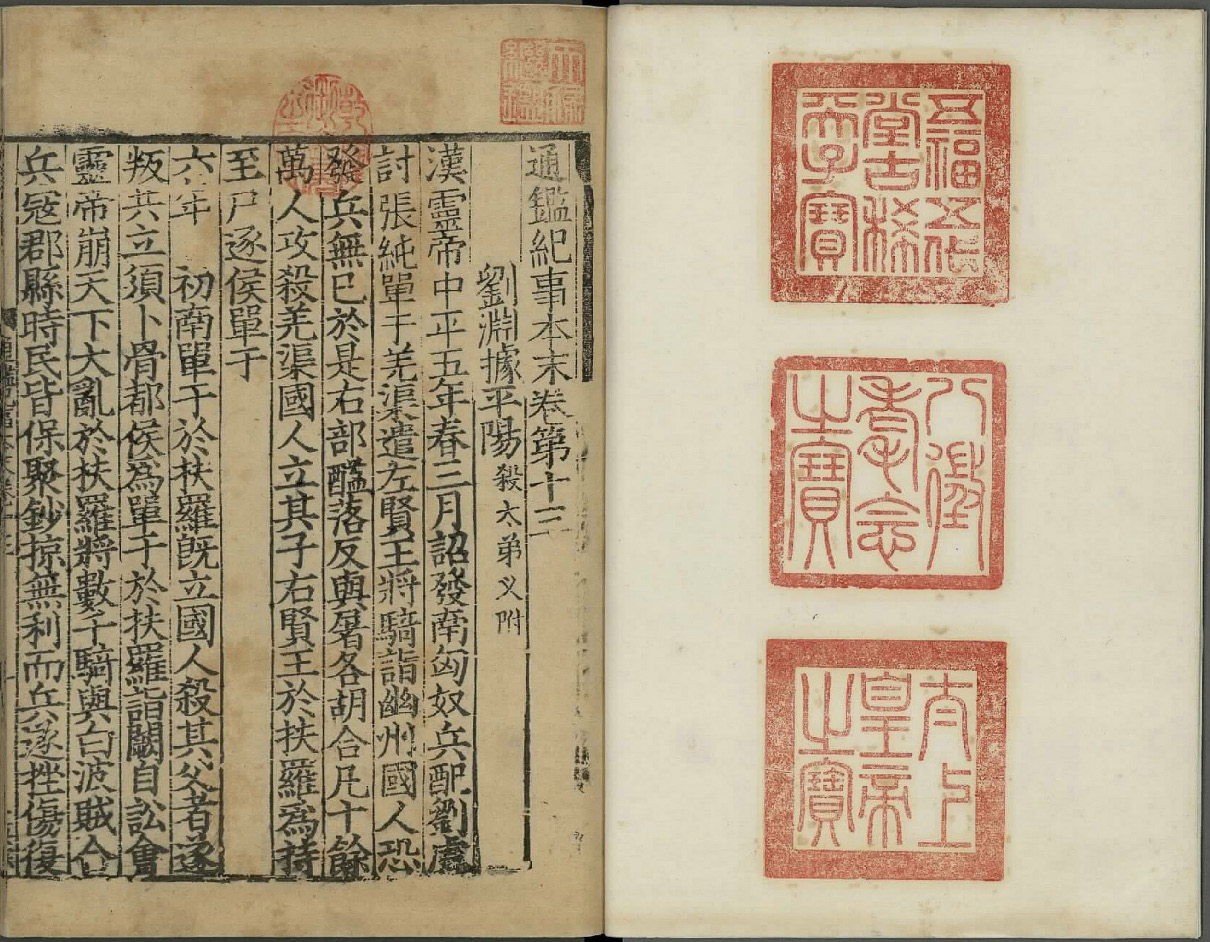 五福五代
堂古稀
天子寶
八徵
耄念
之寶
太上
皇帝
之寶
天祿
繼鑑
乾隆御覽之寶
通鑑紀事本末卷第十三
劉淵據平陽 殺太弟乂附
漢靈帝中平五年春三月詔發南匈奴兵配劉虞
討張純單于羌渠遣左賢王將騎詣幽州國人恐
發兵無已於是右部䤈落反與屠各胡合凡十餘
萬人攻殺羌渠國人立其子右賢王於扶羅爲持
至尸逐侯單于
六年 初南單于於扶羅旣立國人殺其父者遂
叛共立須卜骨都侯爲單于於扶羅詣闕自訟會
靈帝崩天下大亂於扶羅將數千騎與白波賊合
兵寇郡縣時民皆保聚鈔掠無利而兵遂挫傷復